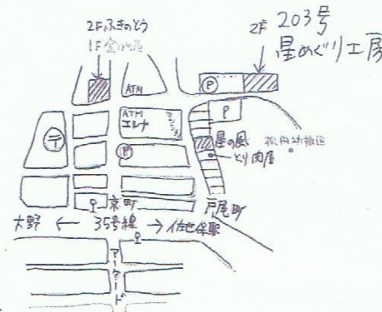 2F ふきのとう
1F
2F 203号
星めぐり工房
ATM
P
ATM
エレナ
P
〒
P
星の風
とり肉屋
京町
戸尾町
大野 ← 35号線 → 佐世保駅
アーケード